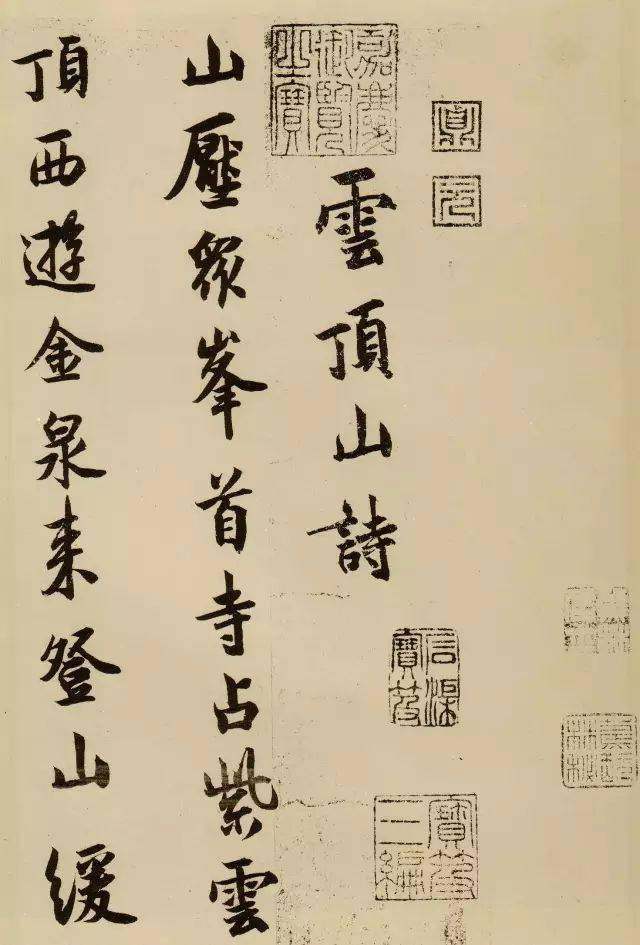 雲頂山詩
山壓眾峯首寺占紫雲
頂西遊金泉来登山緩
嘉慶御覽之寶
石渠寶笈
寶笈三編